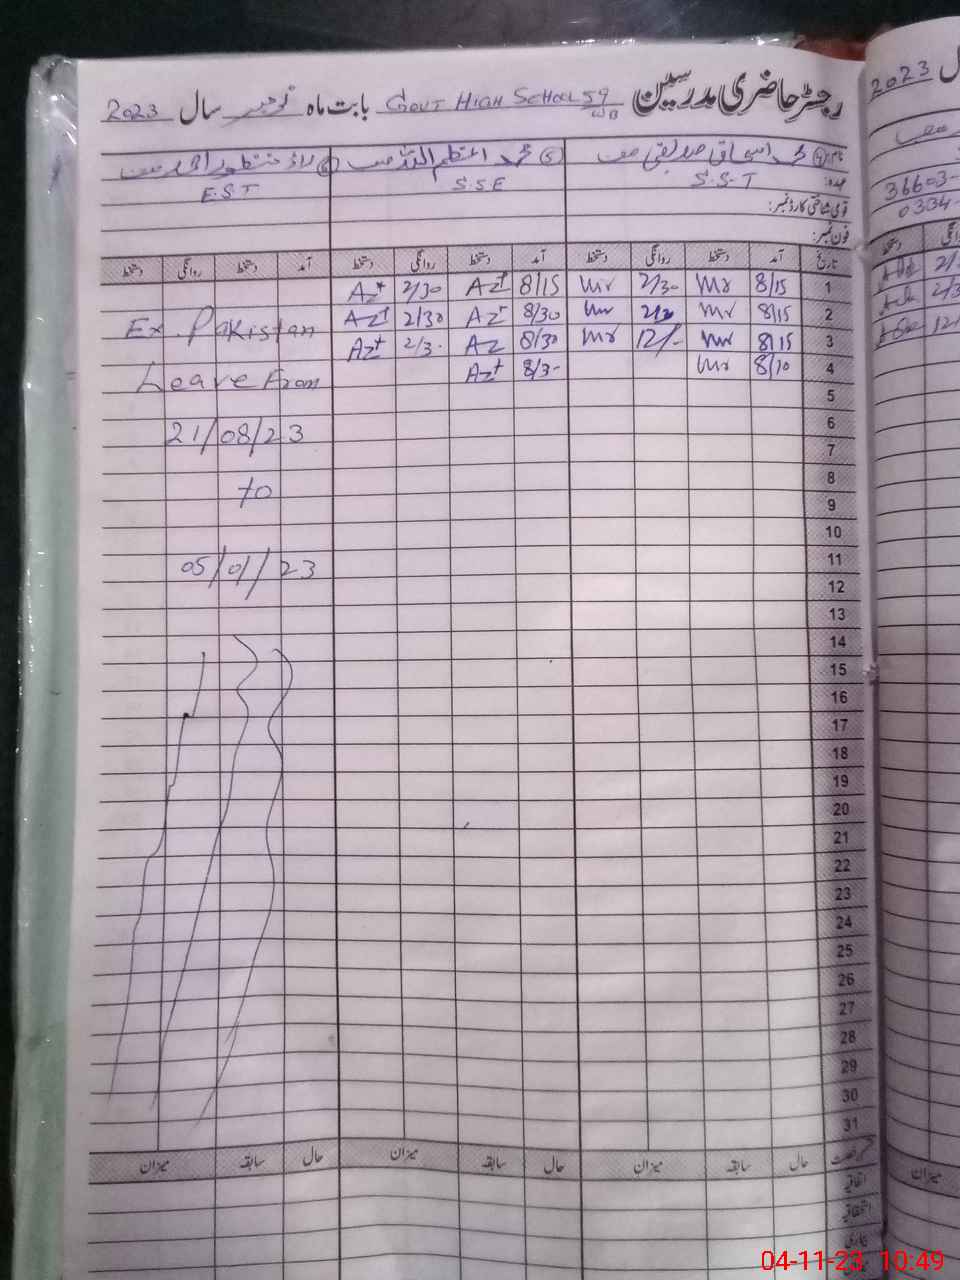 رجسٹر حاضری مدرسین GOVT HIGH SCHOOL 59 بابت ماہ نومبر سال 2023
نام: ④ محمد اسحاق صدیقی صاحب ⑤ محمد اعظم اللہ صاحب ⑥ منظور احمد صاحب
عہدہ: S.S.T S.S.E E.S.T
قومی شناختی کارڈ نمبر:
فون نمبر:
تاریخ آمد دستخط روانگی دستخط آمد دستخط روانگی دستخط آمد دستخط روانگی دستخط
1 8/15 Mr 2/30 Mr 8/15 Az 2/30 Az
2 8/15 Mr 2/2 Mr 8/30 Az 2/30 Az
Ex. Pakistan
3 8/15 Mr 12/- Mr 8/30 Az 2/3- Az
4 8/10 Mr 8/3- Az
Leave From
5
6
21/08/23
7
8
to
9
10
11
05/01/23
12
13
14
15
16
17
18
19
20
21
22
23
24
25
26
27
28
29
30
31
حال سابقہ میزان حال سابقہ میزان حال سابقہ میزان
اتفاقیہ
استحقاقیہ
بیماری
2023
36603-
0334-
دستخط
2/3
12
میزان
04-11-23 10:49